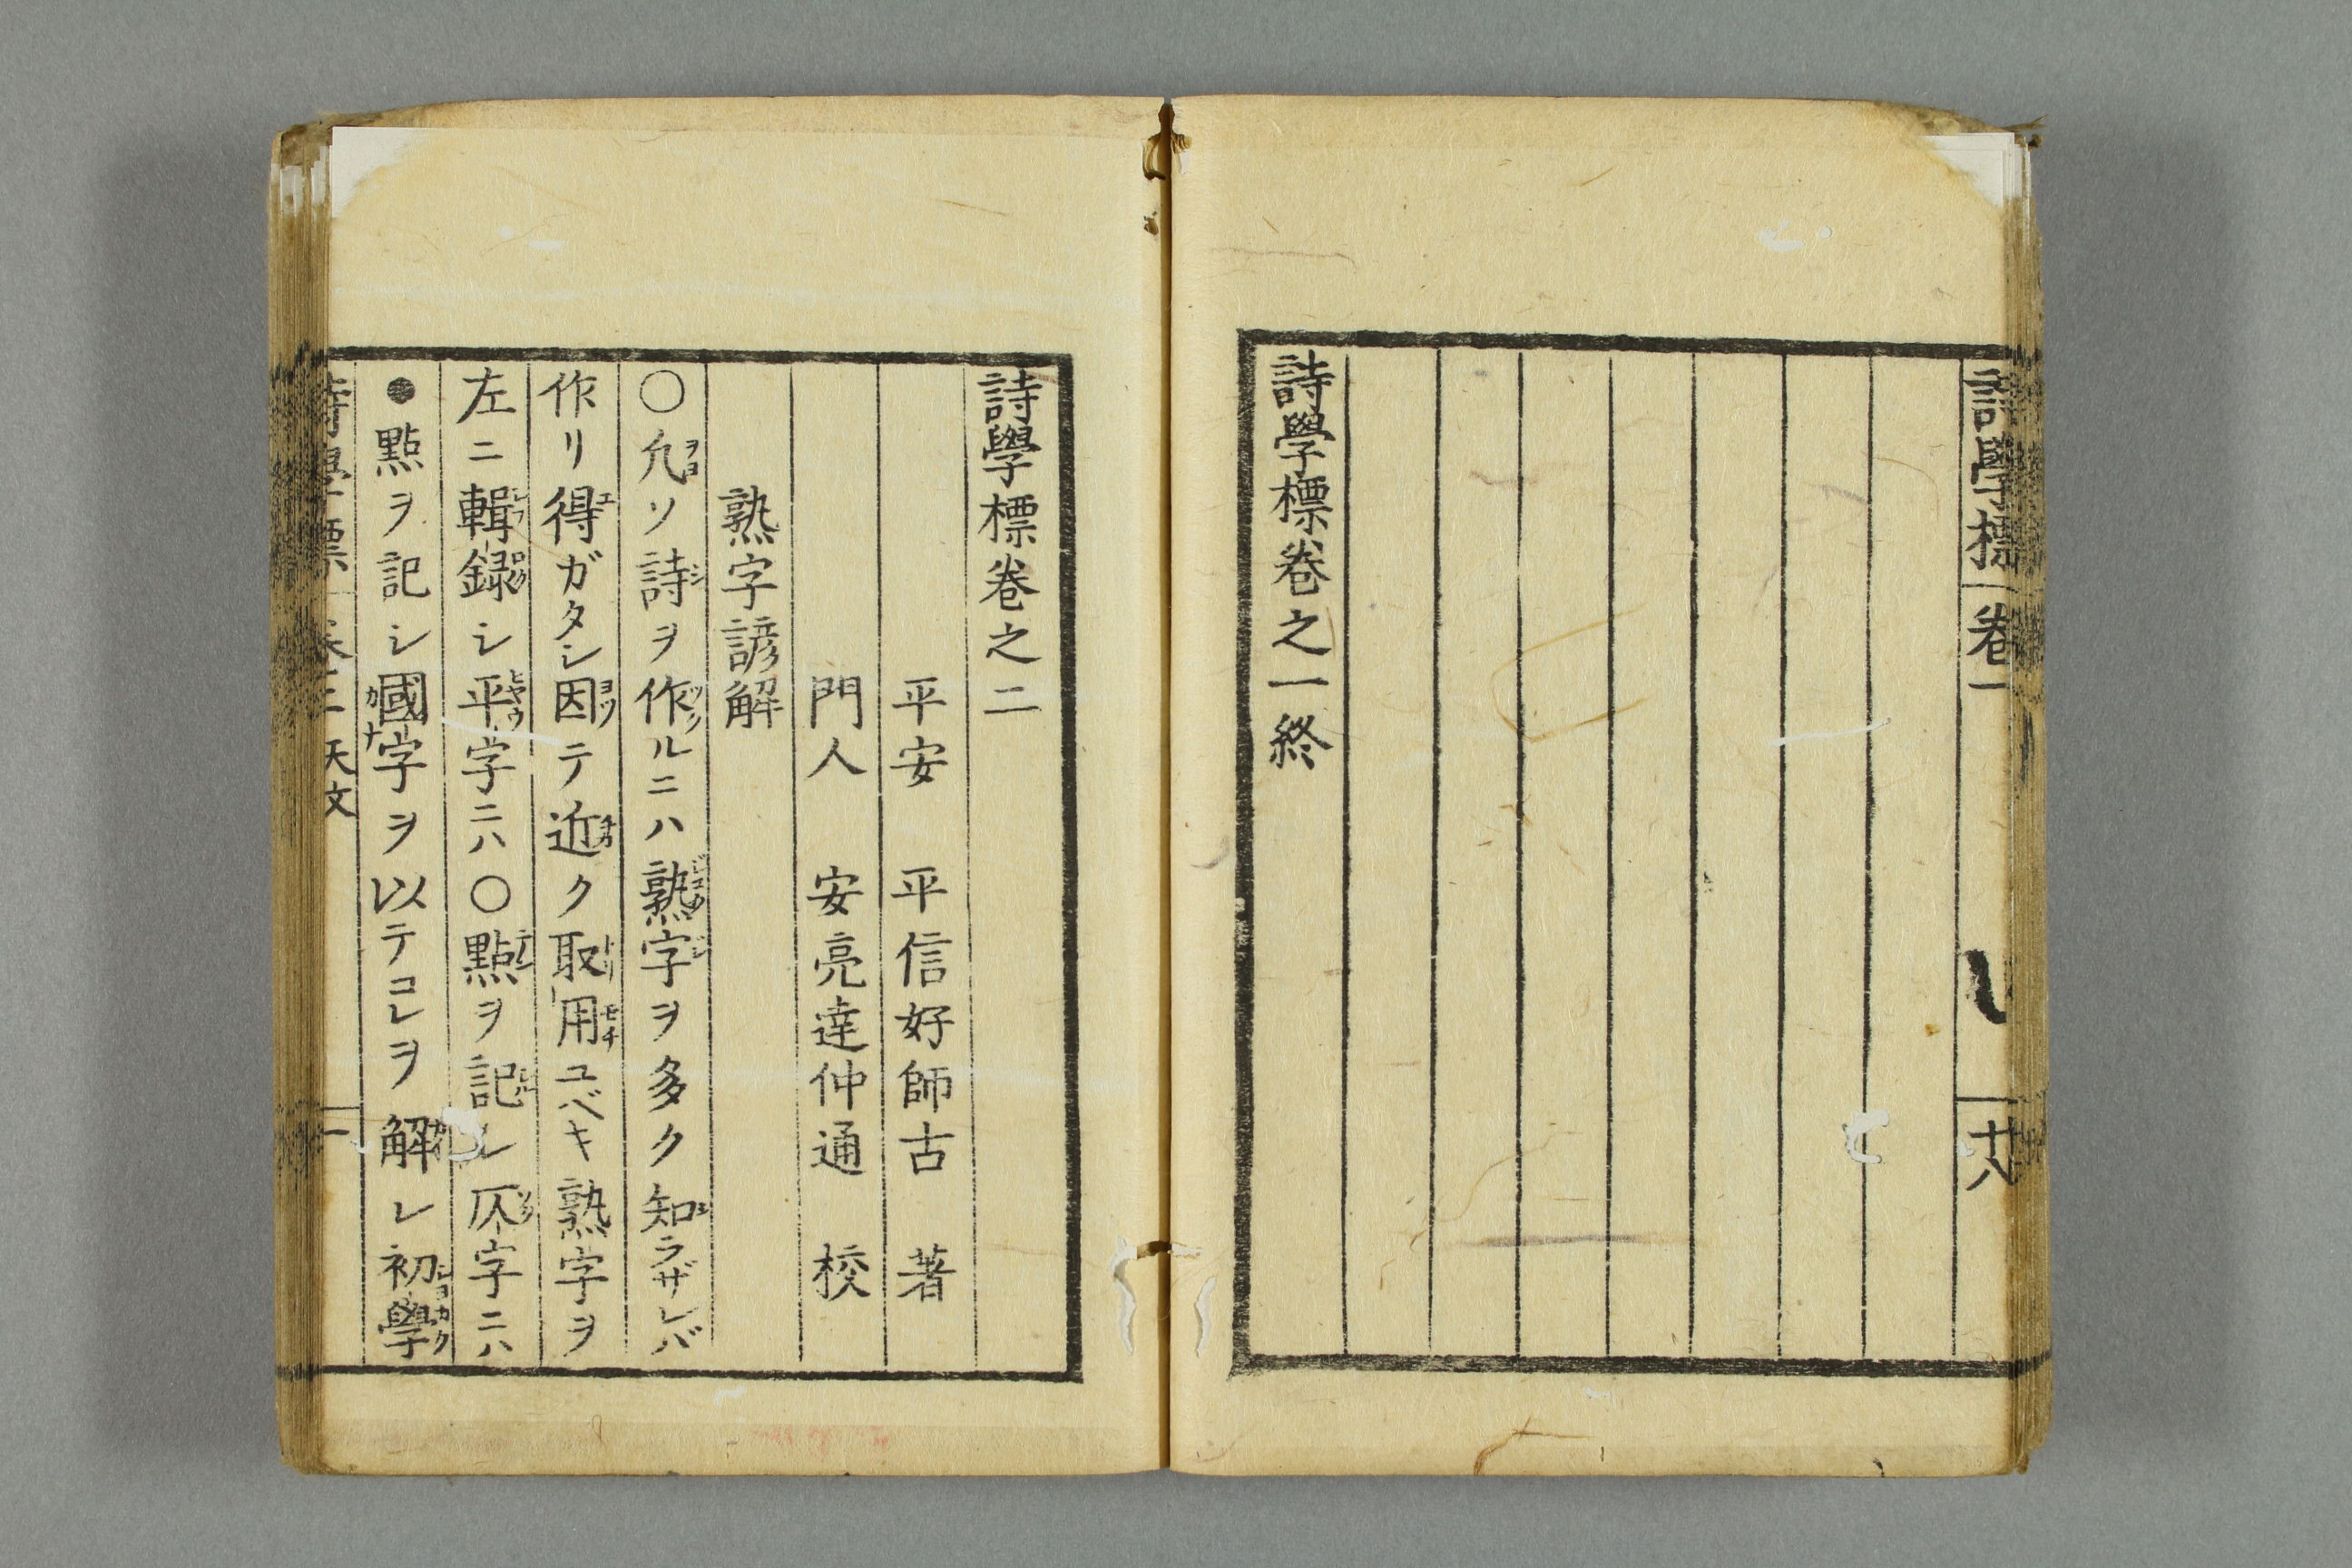 詩學標
卷一
十八
詩學標卷之一終
詩學標卷之二
平安　平信好師古　著
門人　安亮達仲通　校
熟字諺解
○凢ソ詩ヲ作ルニハ熟字ヲ多ク知ラザレバ
作リ得ガタシ因テ近ク取用ユベキ熟字ヲ
左ニ輯録シ平字ニハ○點ヲ記シ仄字ニハ
●點ヲ記シ國字ヲ以テコレヲ解シ初學
詩學標
卷二
天文
一